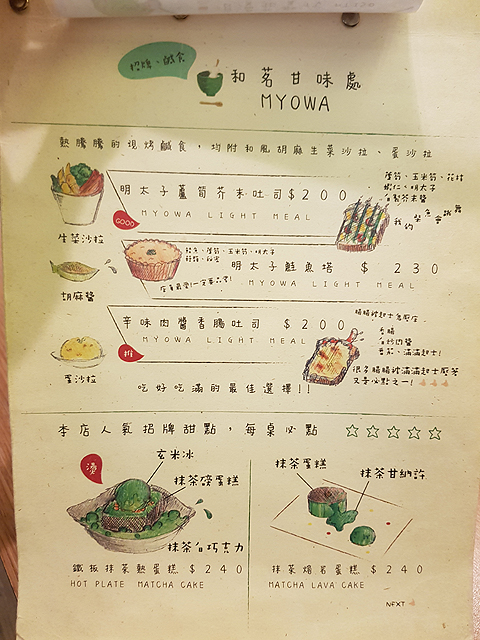 招牌、鹹食
和茗甘味處
MYOWA
熱騰騰的現烤鹹食，均附和風胡麻生菜沙拉、蛋沙拉
明太子蘆筍芥末吐司 $200
MYOWA LIGHT MEAL
GOOD
蘆筍、玉米筍、花枝
蝦仁、明太子
自製芥末醬
生菜沙拉
鮭魚、蘆筍、玉米筍、明太子
明太子鮭魚塔 $ 230
MYOWA LIGHT MEAL
胡麻醬
辛味肉醬香腸吐司 $200
MYOWA LIGHT MEAL
推
香腸
蛋沙拉
吃好吃滿的最佳選擇!!
又香必點之一!
本店人氣招牌甜點，每桌必點 ☆☆☆☆☆
燙
玄米冰
抹茶磅蛋糕
抹茶白巧克力
鐵板抹茶熱蛋糕 $240
HOT PLATE MATCHA CAKE
抹茶蛋糕
抹茶甘納許
抹茶熔岩蛋糕 $240
MATCHA LAVA CAKE
NEXT